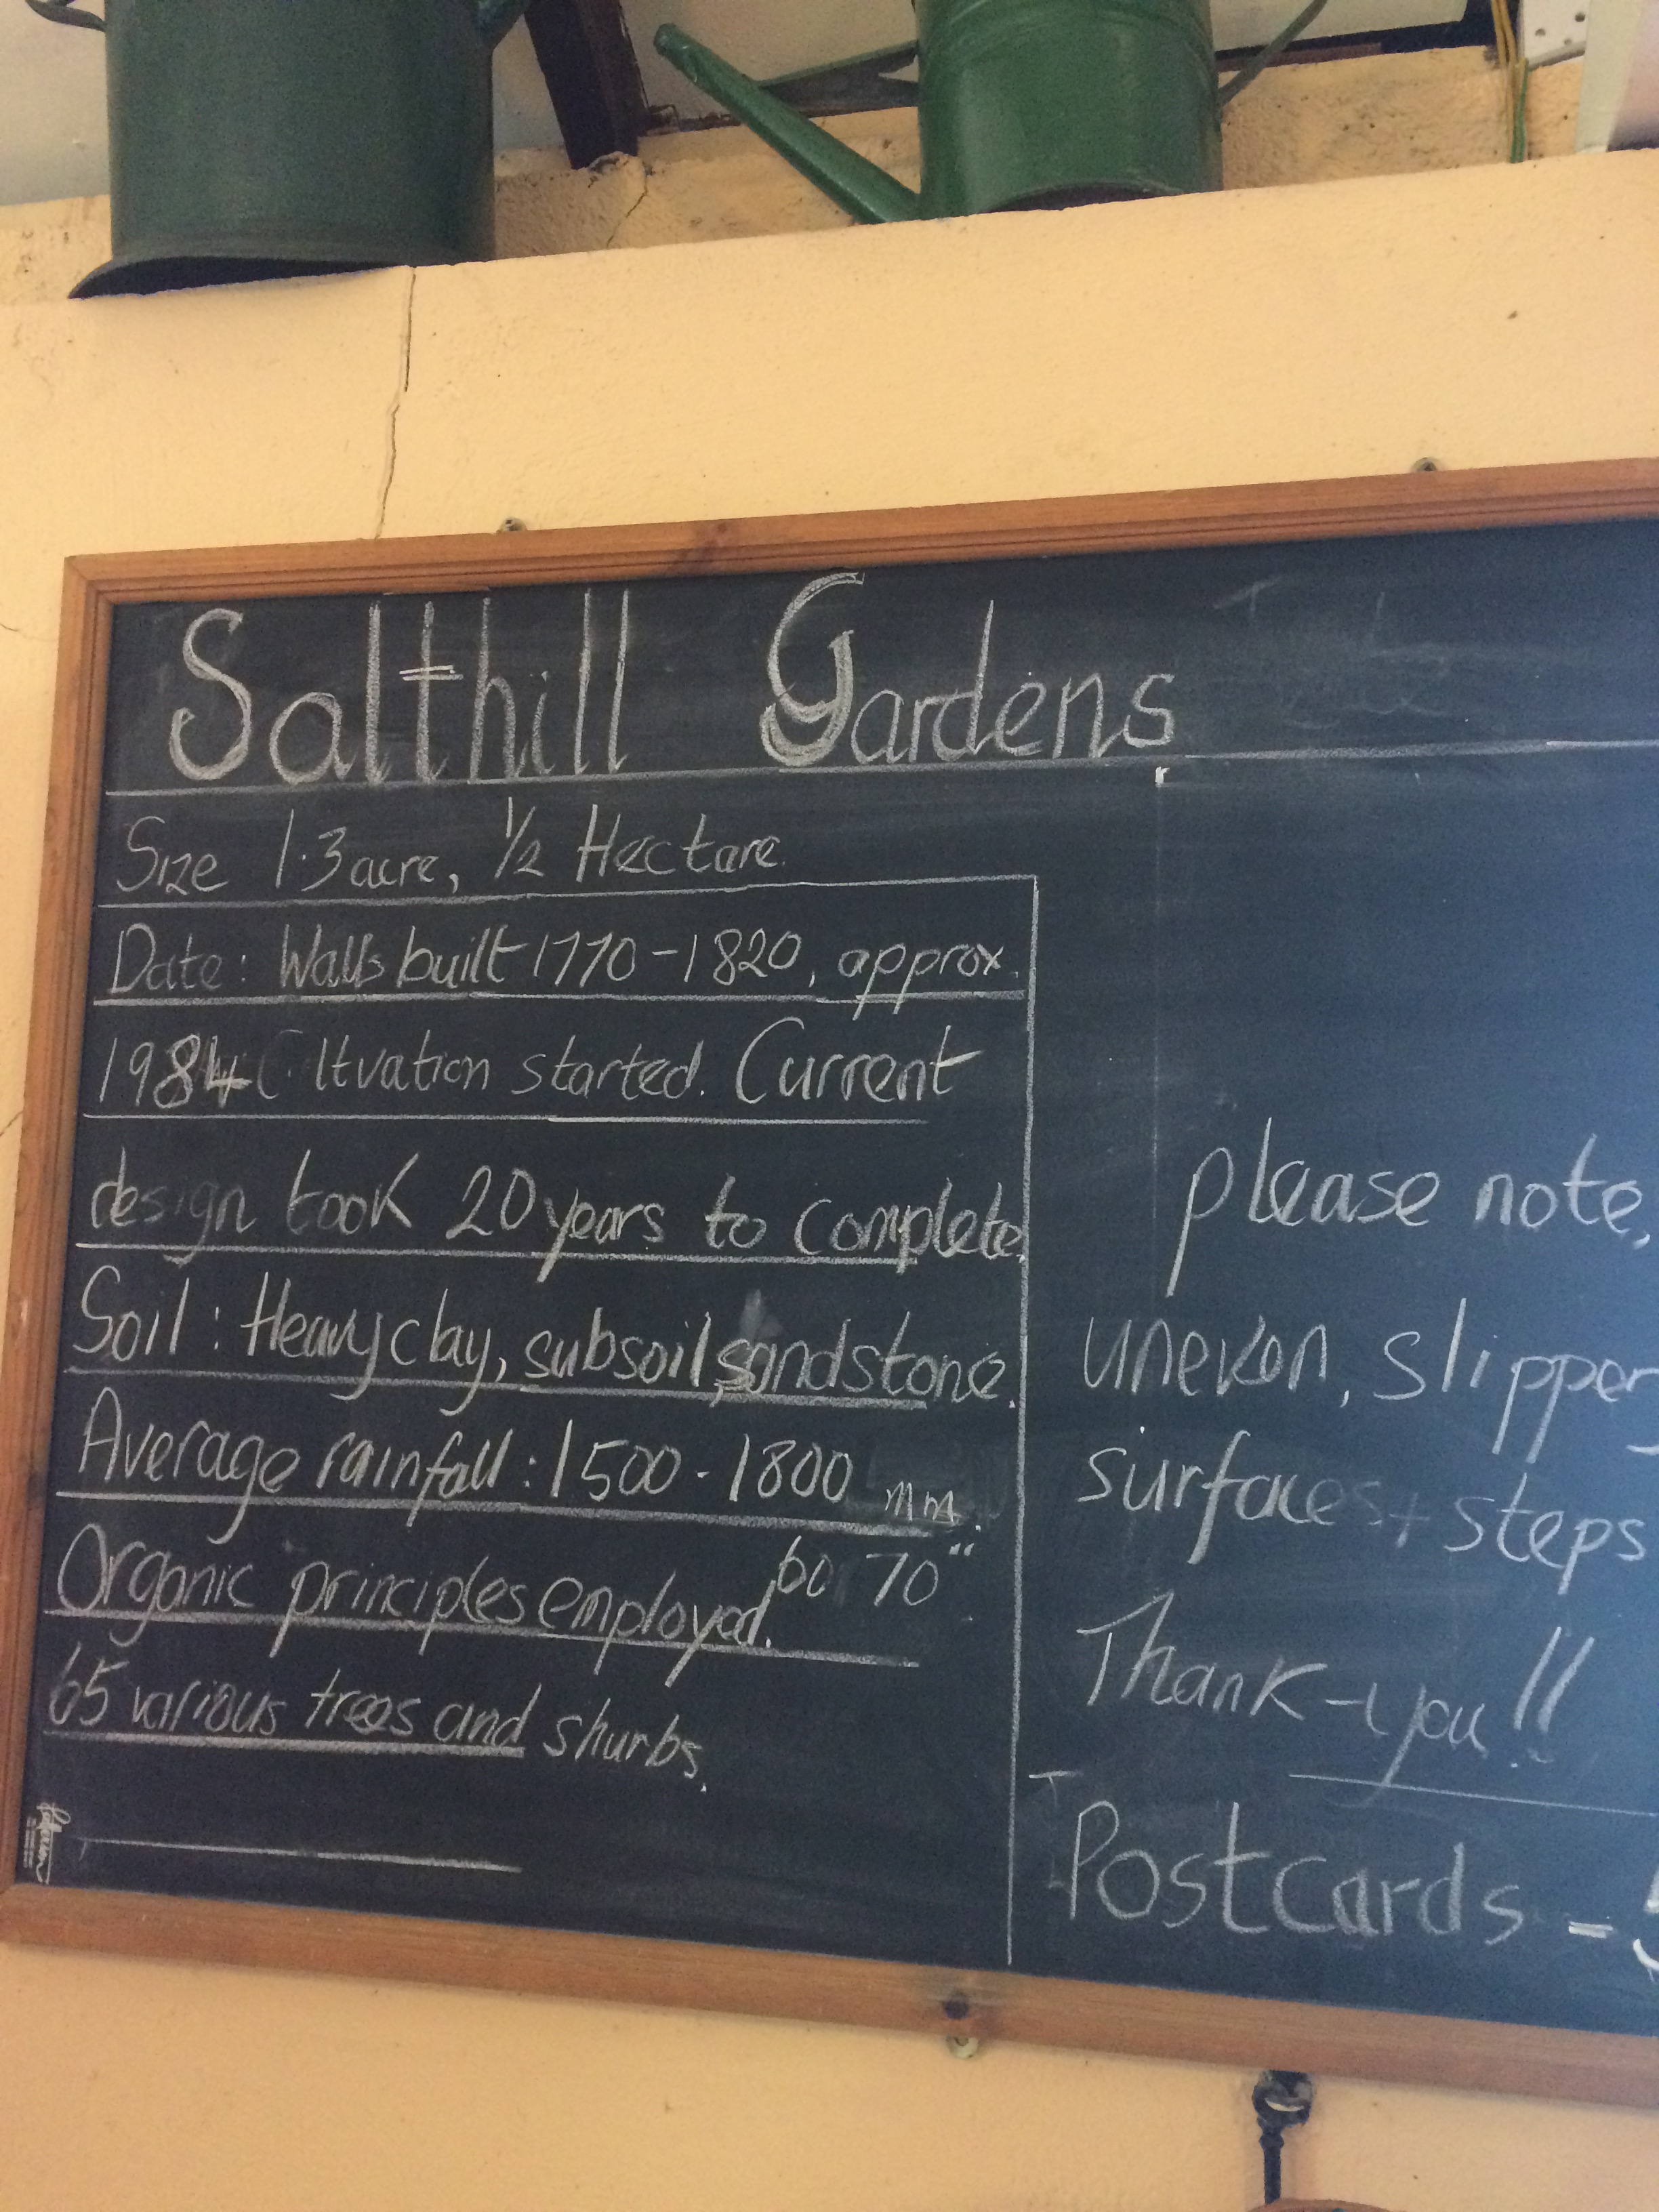 Salthill Gardens
Size 1.3 acre, 1/2 Hectare.
Date: Walls built 1770-1820, approx.
1984 C ltvation started. Current
design took 20 years to complete.
Soil: Heavy clay, subsoil, sandstone.
Average rainfall: 1500 - 1800 mm.
60 70"
Organic principles employed.
65 various trees and shurbs.
please note,
uneven, slipper
surfaces + steps
Thank-you!!
Postcards -